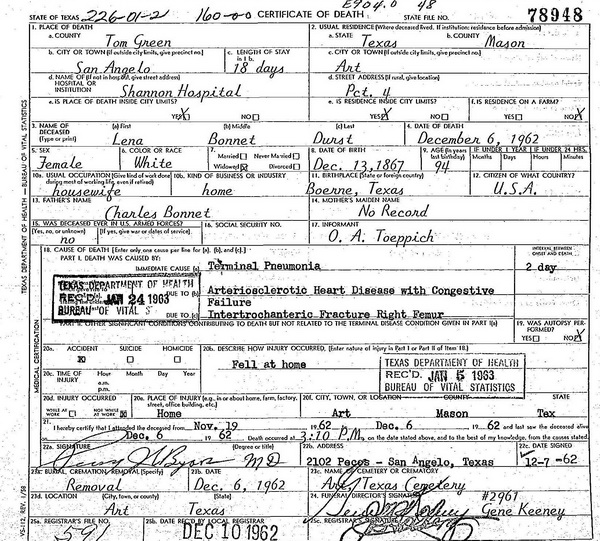 E904.0 48
STATE OF TEXAS 226-01-2 160-00 CERTIFICATE OF DEATH STATE FILE NO. 78948
1. PLACE OF DEATH 2. USUAL RESIDENCE (Where deceased lived. If institution: residence before admission)
a. COUNTY Tom Green a. STATE Texas b. COUNTY Mason
b. CITY OR TOWN (If outside city limits, give precinct no.) San Angelo c. LENGTH OF STAY in 1 b. 18 days c. CITY OR TOWN (If outside city limits, give precinct no.) Art
d. NAME OF (If not in hospital, give street address) HOSPITAL OR INSTITUTION Shannon Hospital d. STREET ADDRESS (If rural, give location) Pct. 4
e. IS PLACE OF DEATH INSIDE CITY LIMITS? YES X NO e. IS RESIDENCE INSIDE CITY LIMITS? YES NO f. IS RESIDENCE ON A FARM? YES NO
3. NAME OF DECEASED (Type or print) (a) First Lena (b) Middle Bonnet (c) Last Durst 4. DATE OF DEATH December 6, 1962
5. SEX Female 6. COLOR OR RACE White 7. Married Never Married Widowed X Divorced 8. DATE OF BIRTH Dec. 13, 1867 9. AGE (In years last birthday) 94 IF UNDER 1 YEAR Months Days IF UNDER 24 HRS. Hours Minutes
10a. USUAL OCCUPATION (Give kind of work done during most of working life, even if retired) housewife 10b. KIND OF BUSINESS OR INDUSTRY home 11. BIRTHPLACE (State or foreign country) Boerne, Texas 12. CITIZEN OF WHAT COUNTRY? U.S.A.
13. FATHER'S NAME Charles Bonnet 14. MOTHER'S MAIDEN NAME No Record
15. WAS DECEASED EVER IN U.S. ARMED FORCES? (Yes, no, or unknown) (If yes, give war or dates of service) no 16. SOCIAL SECURITY NO. 17. INFORMANT O. A. Toeppich
18. CAUSE OF DEATH [Enter only one cause per line for (a), (b), and (c).] INTERVAL BETWEEN ONSET AND DEATH
PART I. DEATH WAS CAUSED BY:
IMMEDIATE CAUSE (a) Terminal Pneumonia 2 day
DUE TO (b) Arteriosclerotic Heart Disease with Congestive
Failure
DUE TO (c) Intertrochanteric Fracture Right Femur
TEXAS DEPARTMENT OF HEALTH
REC'D JAN 24 1963
BUREAU OF VITAL S
PART II. OTHER SIGNIFICANT CONDITIONS CONTRIBUTING TO DEATH BUT NOT RELATED TO THE TERMINAL DISEASE CONDITION GIVEN IN PART I(a) 19. WAS AUTOPSY PERFORMED? YES NO X
20a. ACCIDENT X SUICIDE HOMICIDE 20b. DESCRIBE HOW INJURY OCCURRED. (Enter nature of injury in Part I or Part II of Item 18.)
Fell at home
TEXAS DEPARTMENT OF HEALTH
REC'D. JAN 5 1963
BUREAU OF VITAL STATISTICS
20c. TIME OF INJURY Hour Month Day Year a.m. p.m.
20d. INJURY OCCURRED WHILE AT WORK NOT WHILE AT WORK 20e. PLACE OF INJURY (e.g. in or about home, farm, factory, street, office building, etc.) Home 20f. CITY, TOWN, OR LOCATION Art COUNTY Mason STATE Tex
21. I hereby certify that I attended the deceased from Nov. 19 1962 Dec. 6 1962 and last saw the deceased alive
on Dec. 6 1962 Death occurred at 3:10 P.M. on the date stated above, and to the best of my knowledge, from the causes stated.
22a. SIGNATURE (Degree or title) MD 22b. ADDRESS 2102 Pecos - San Angelo, Texas 22c. DATE SIGNED 12-7-62
23a. BURIAL, CREMATION, REMOVAL (Specify) Removal 23b. DATE Dec. 6, 1962 23c. NAME OF CEMETERY OR CREMATORY Art, Texas Cemetery
23d. LOCATION (City) Art (State) Texas 24. FUNERAL DIRECTOR'S SIGNATURE #2961 Gene Keeney
25a. REGISTRAR'S FILE NO. 591 25b. DATE REC'D BY LOCAL REGISTRAR DEC 10 1962 25c. REGISTRAR'S SIGNATURE
TEXAS DEPARTMENT OF HEALTH — BUREAU OF VITAL STATISTICS
MEDICAL CERTIFICATION
VS-112, REV. 1/58